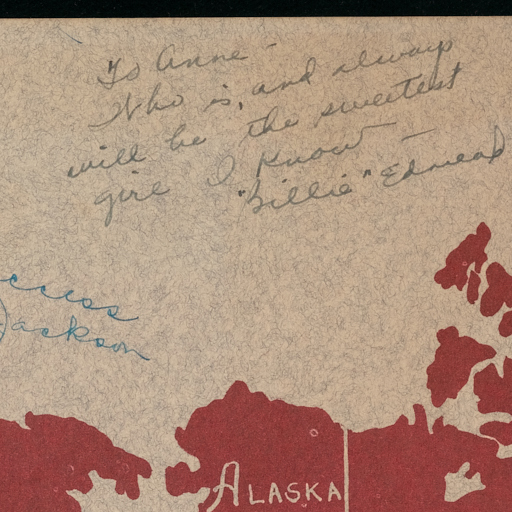 To Anne –
Who is, and always
will be the sweetest
girl I know —
"Billie" Edmead
ccess
Jackson
ALASKA